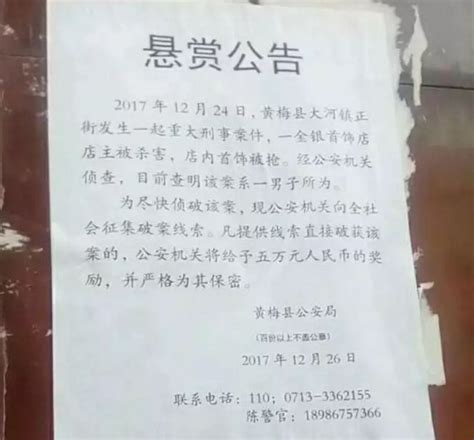 悬赏公告
2017 年 12 月 24 日，黄梅县大河镇正
街发生一起重大刑事案件，一金银首饰店
店主被杀害，店内首饰被抢。经公安机关
侦查，目前查明该案系一男子所为。
为尽快侦破该案，现公安机关向全社
会征集破案线索。凡提供线索直接破获该
案的，公安机关将给予五万元人民币的奖
励，并严格为其保密。
黄梅县公安局
(百份以上不盖公章)
2017 年 12 月 26 日
联系电话：110；0713-3362155
陈警官：18986757366